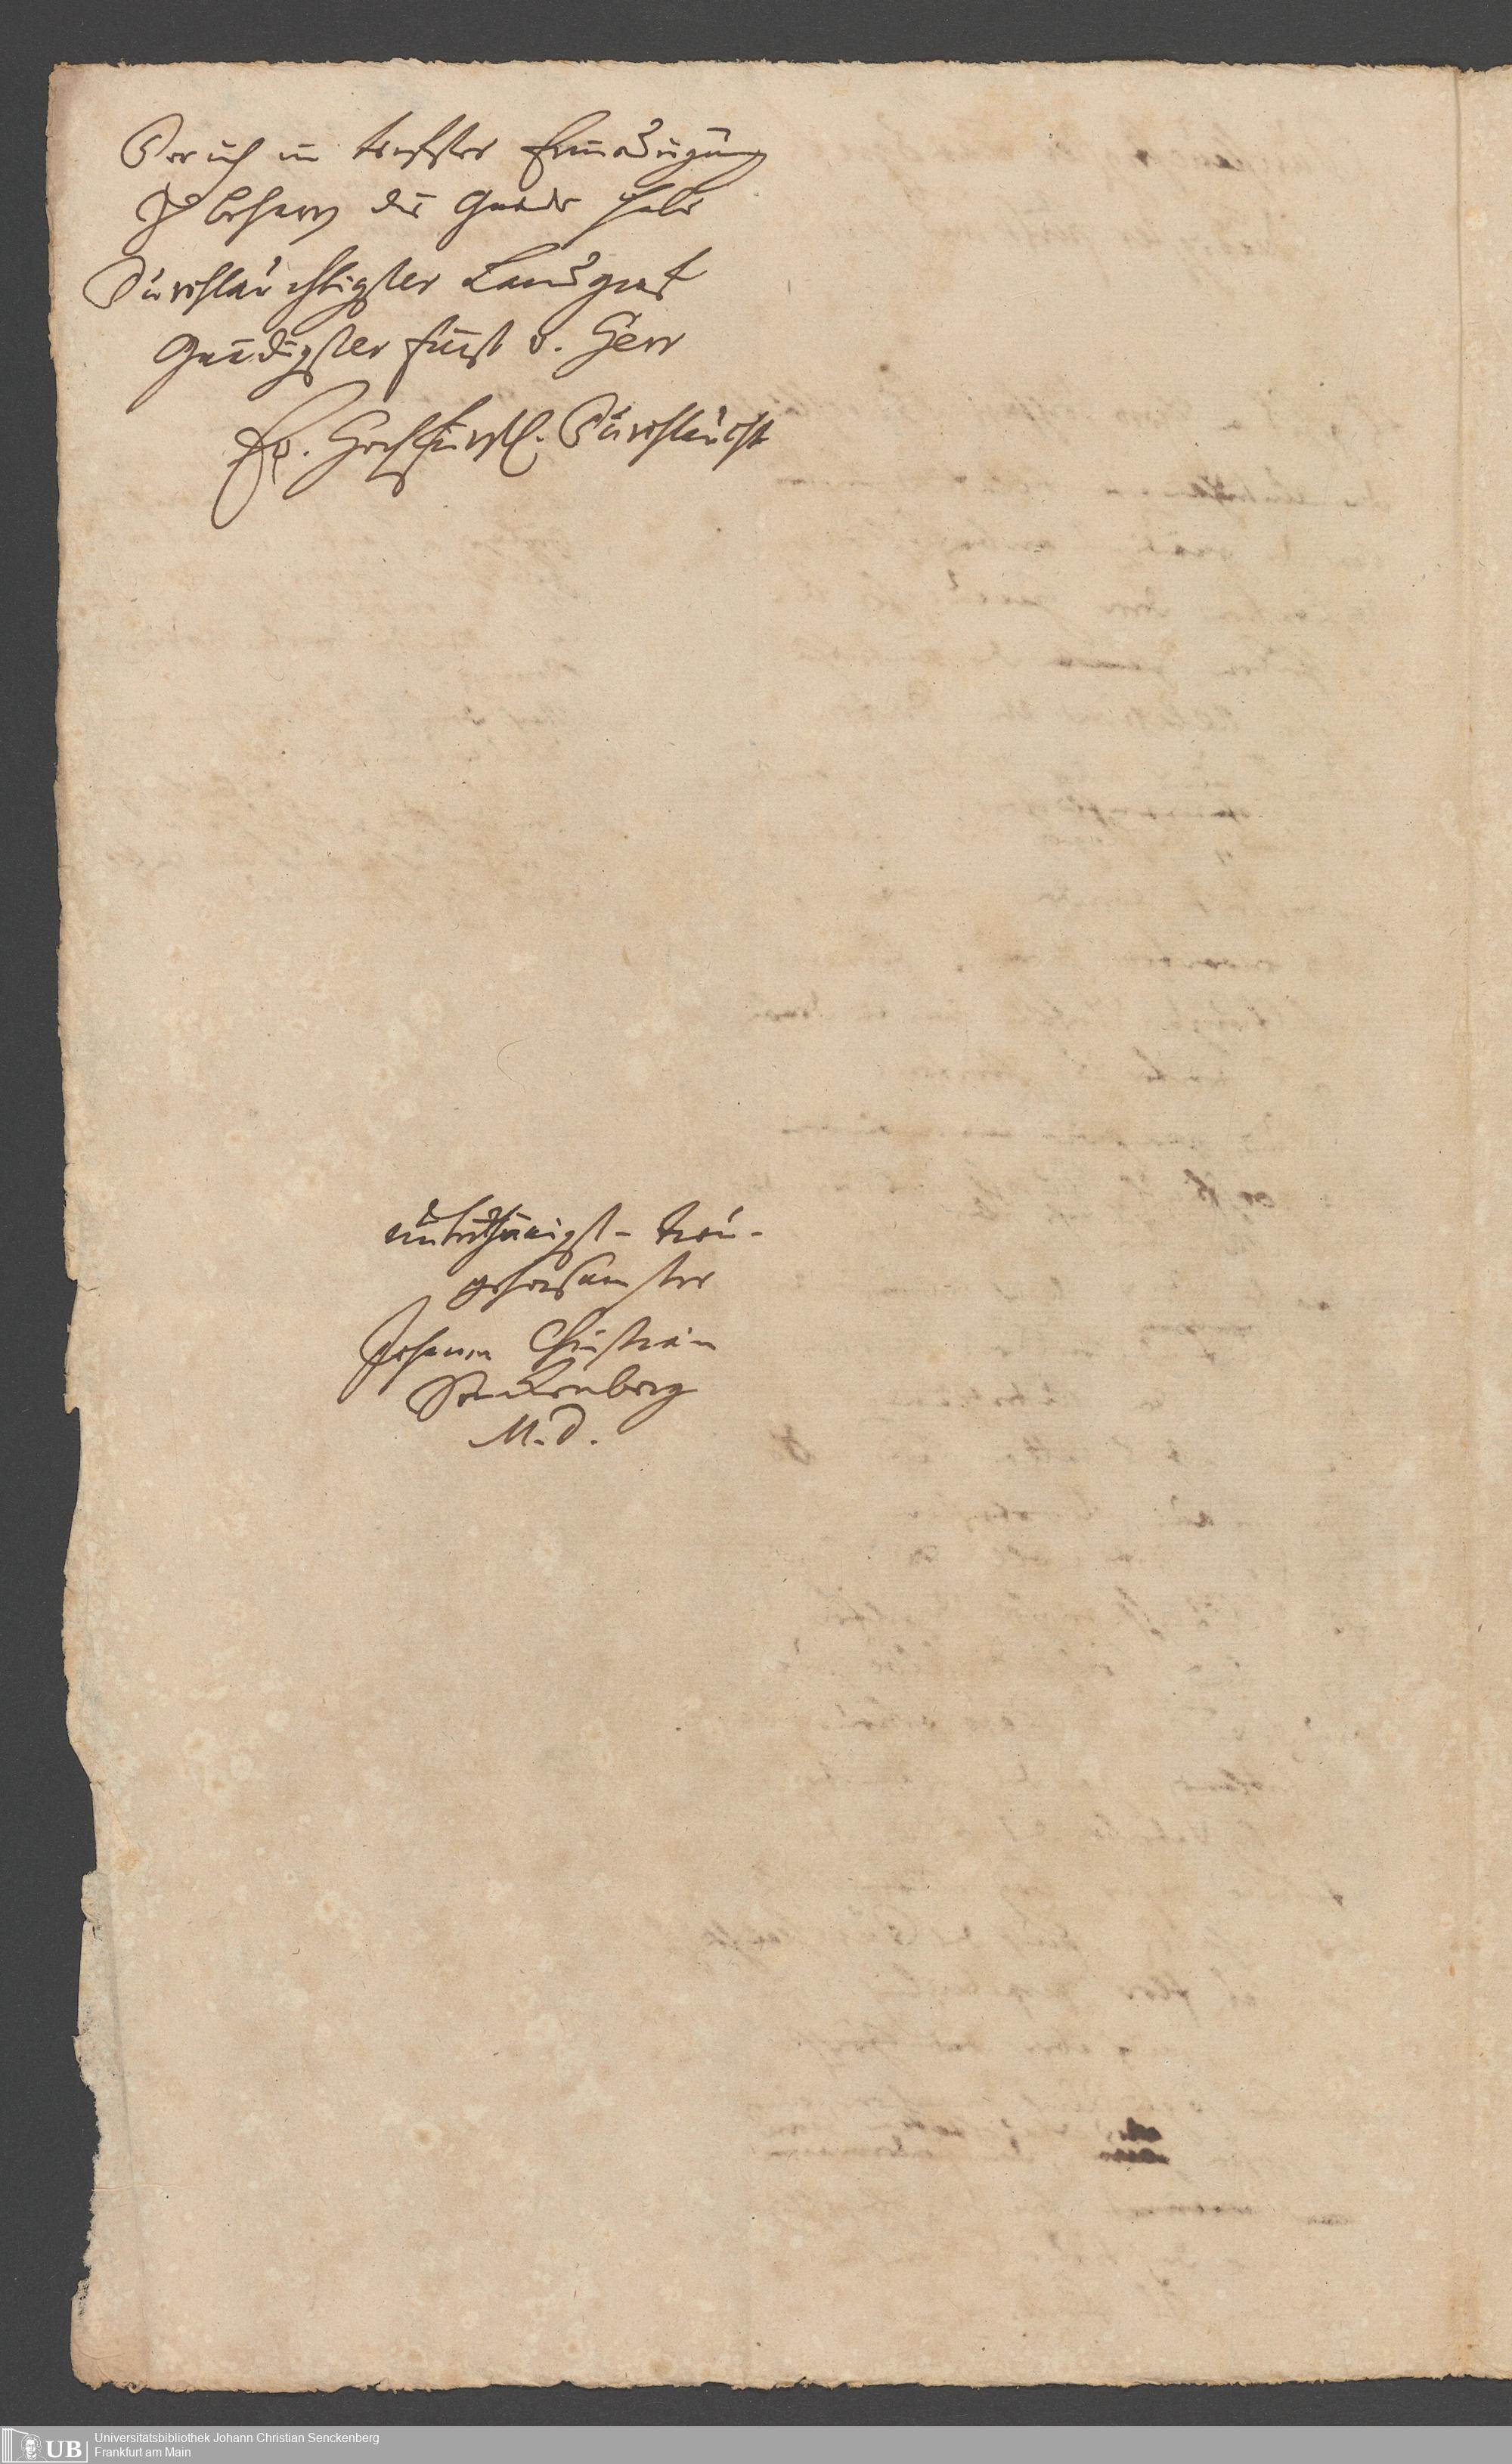 Der ich in tiefster Erniedrigung
zu beharren die Gnade habe
Durchläuchtigster Landgraf
Gnädigster Fürst u. Herr
Ew. Hochfürstl. Durchläucht
unterthänigst-treu-
gehorsamster
Johann Christian
Senckenberg
M.D.
UB
Universitätsbibliothek Johann Christian Senckenberg
Frankfurt am Main